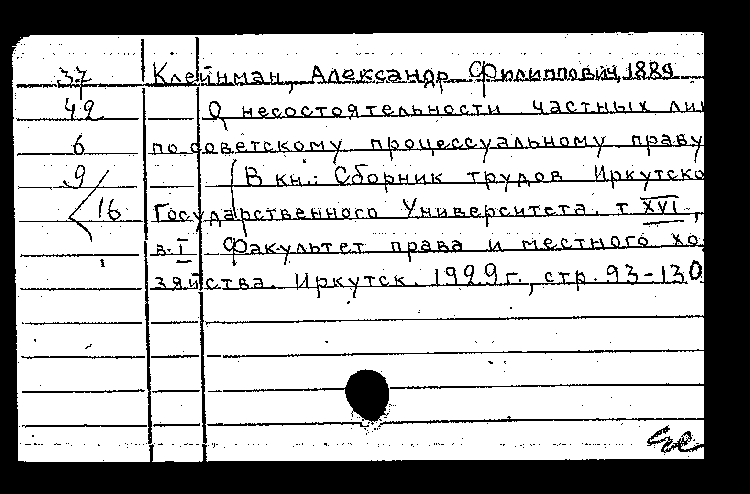 37 Клейнман, Александр Филиппович, 1889
42 О несостоятельности частных ли
6 по советскому процессуальному праву
9 (В кн.: Сборник трудов Иркутско
16 Государственного Университета. т XVI,
в. I Факультет права и местного хо
зяйства. Иркутск. 1929 г., стр. 93-130